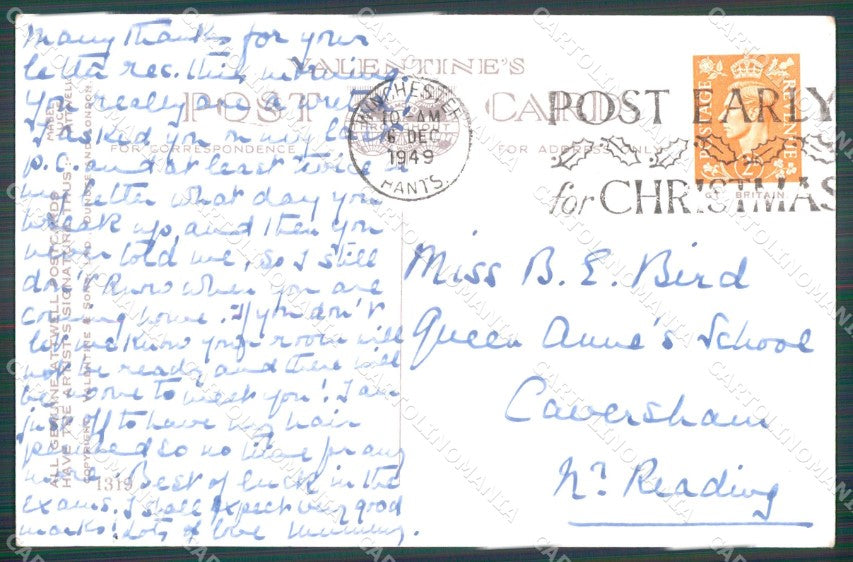 Many thanks for your
letter rec. this morning.
You really are a
I asked you on my last
p.c. and at least twice in
my letter what day you
break up, and then you
never told me, so I still
don't know when you are
coming home. If you don't
let me know your room will
not be ready and there will
be no one to meet you! I am
just off to have my hair
permed so no time for any
more. Best of luck in the
exams. I shall expect very good
marks! Lots of love Mummy.
ALL GENUINE ATTWELL POSTCARDS
HAVE THE ARTIST'S SIGNATURE THUS:-
MABEL
LUCIE
ATTWELL
COPYRIGHT VALENTINE & SONS LTD DUNDEE AND LONDON
1319
VALENTINE'S
POST CARD
FOR CORRESPONDENCE
FOR ADDRESS ONLY
WINCHESTER
10-AM
6 DEC
1949
HANTS.
POST EARLY
for CHRISTMAS
POSTAGE
REVENUE
2D
GT. BRITAIN
Miss B. E. Bird
Queen Anne's School
Caversham
Nr. Reading
CARTOLINOMANIA